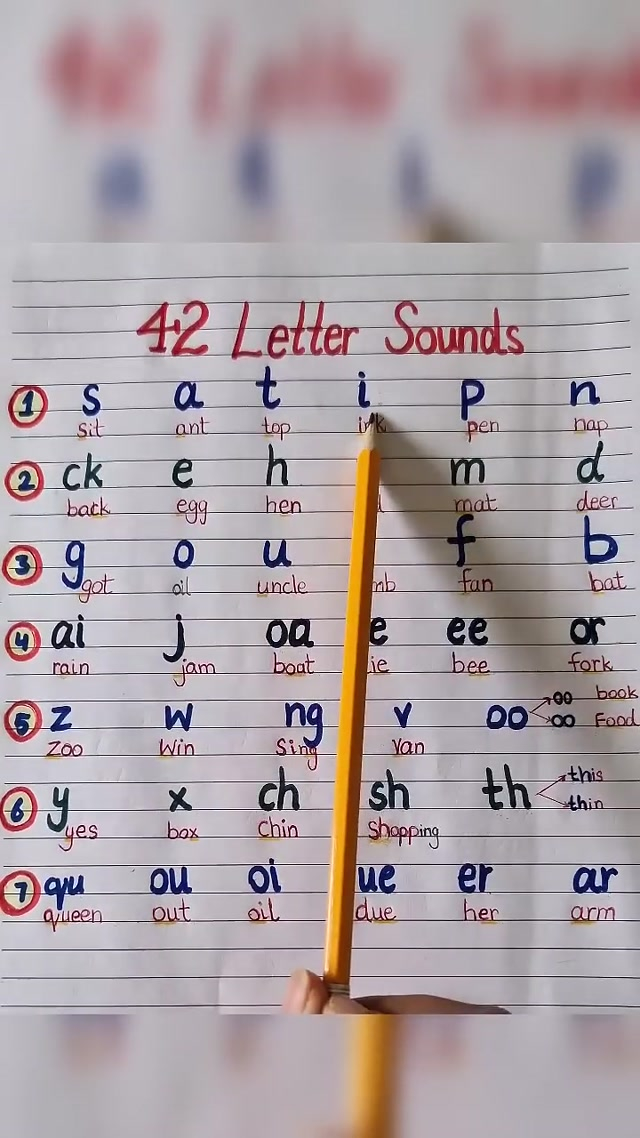 42 Letter Sounds
1 s a t i p n
sit ant top ink pen nap
2 ck e h m d
back egg hen mat deer
3 g o u f b
got oil uncle fan bat
4 ai j oa ee or
rain jam boat bee fork
5 z w ng v oo oo book
oo Food
Zoo Win Sing Van
6 y x ch sh th this
thin
yes box Chin Shopping
7 qu ou oi ue er ar
queen out oil due her arm